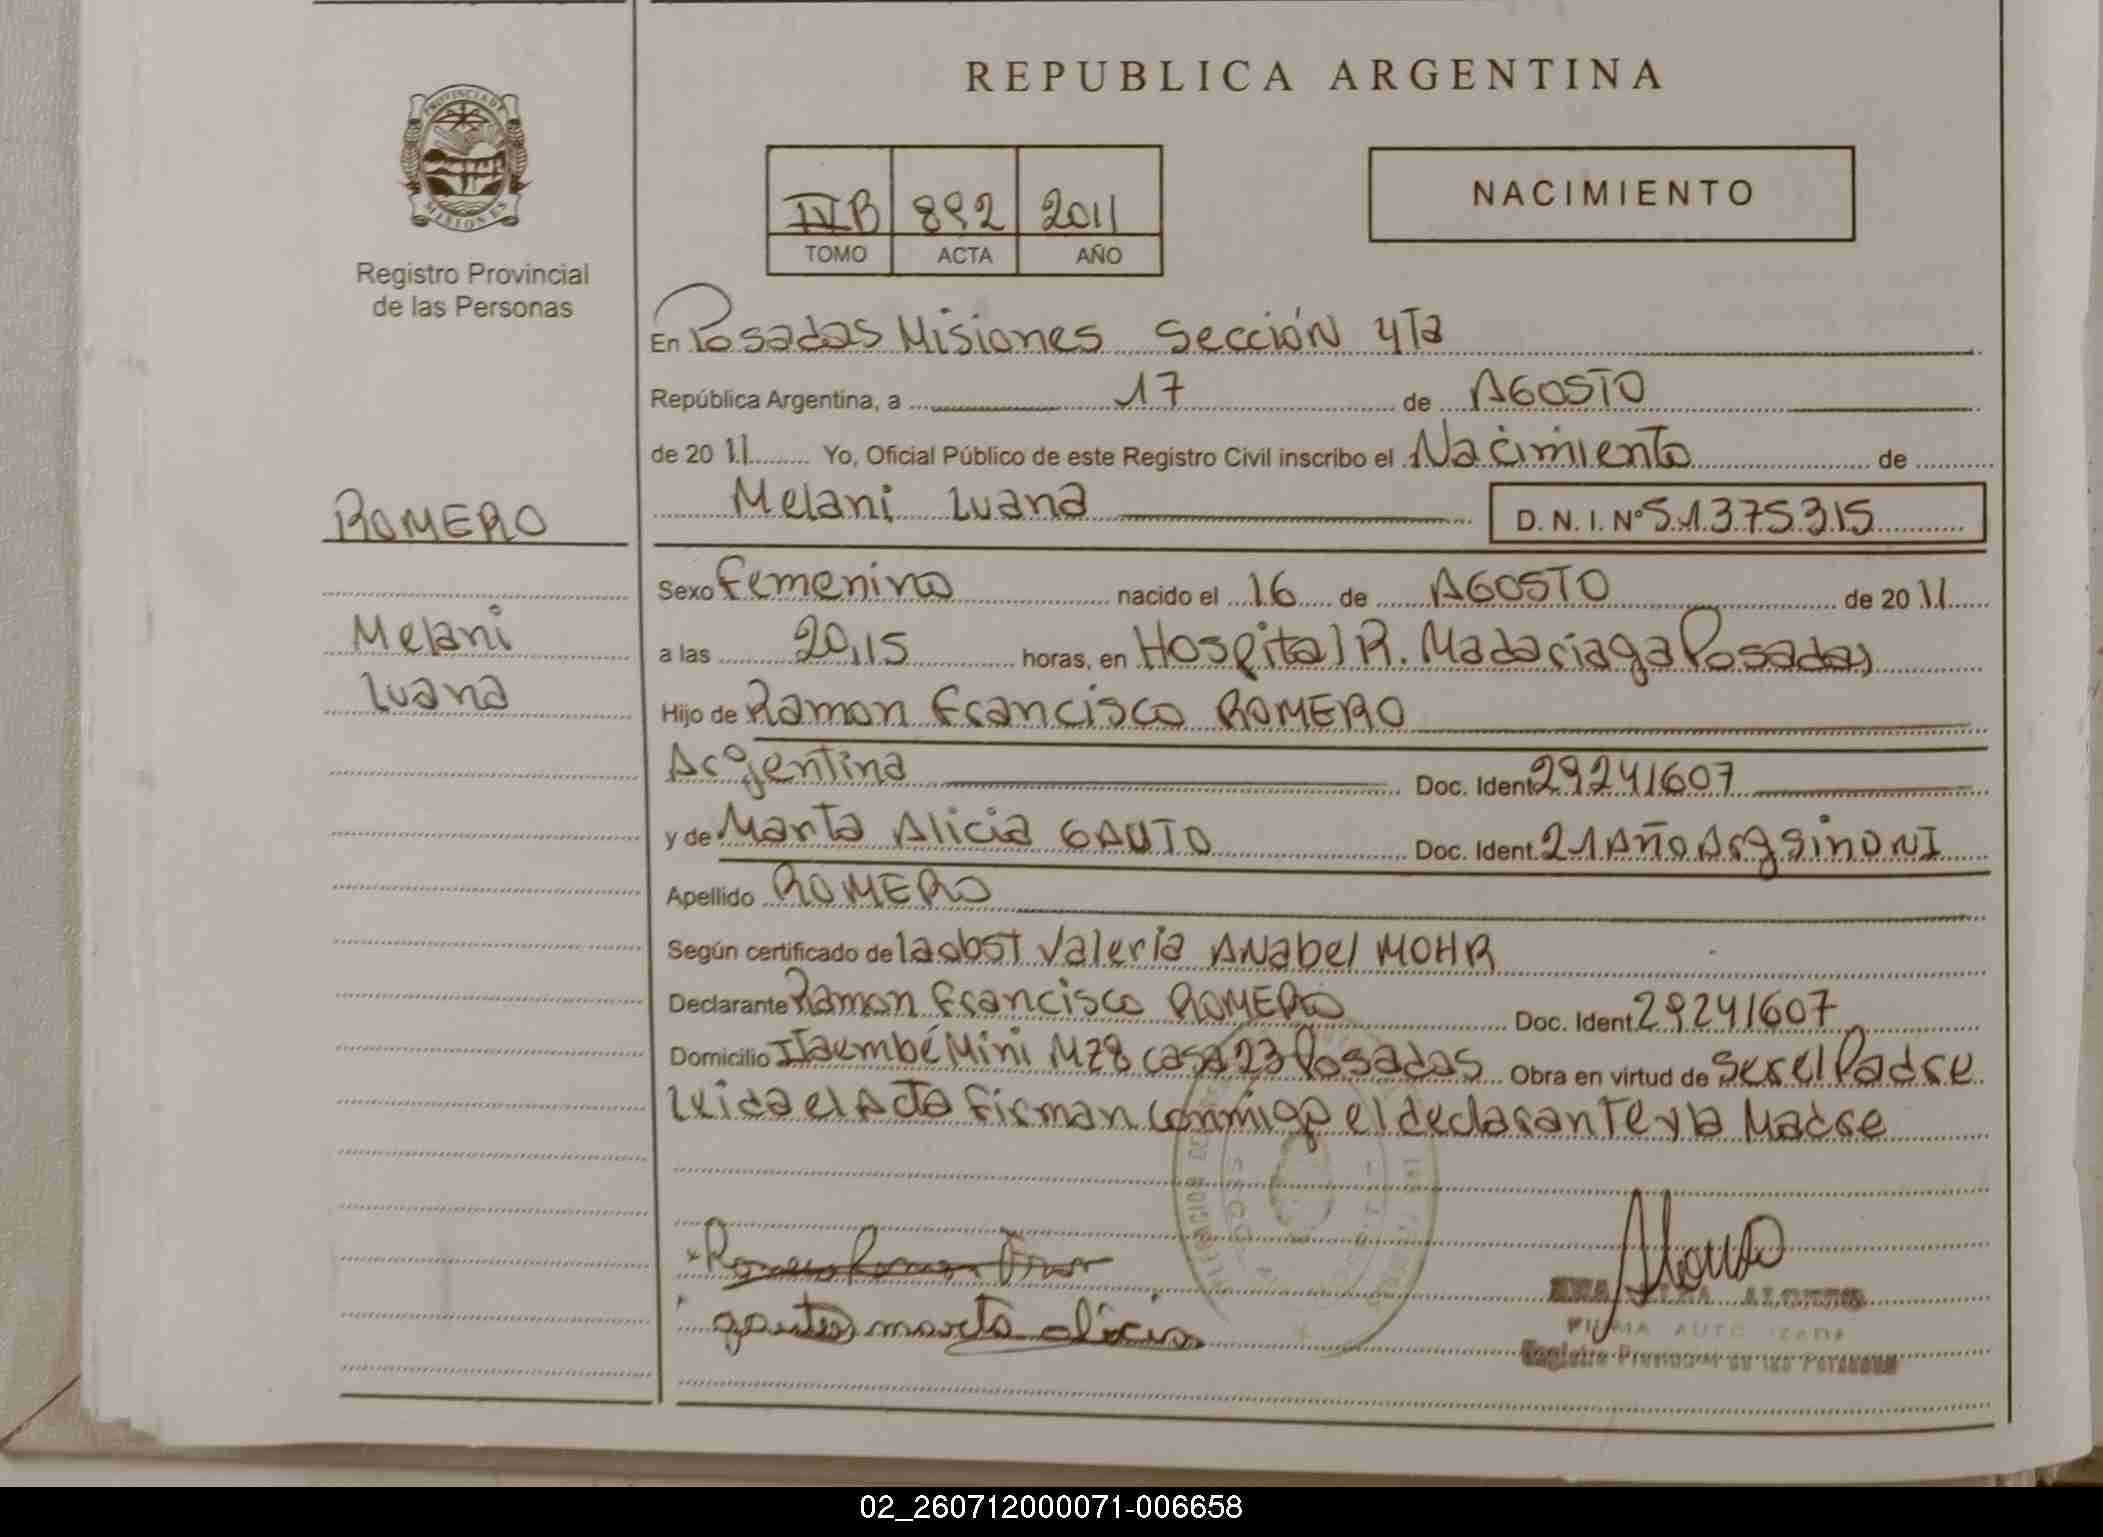 REPUBLICA ARGENTINA
PROVINCIA DE MISIONES
Registro Provincial
de las Personas
IVB 892 2011
TOMO ACTA AÑO
NACIMIENTO
En Posadas Misiones Sección 4Ta
República Argentina, a 17 de AGOSTO
de 20 11 Yo, Oficial Público de este Registro Civil inscribo el Nacimiento de
Melani Luana D. N. I. Nº 51375315
ROMERO
Melani
Luana
Sexo Femenino nacido el 16 de AGOSTO de 20 11
a las 20,15 horas, en Hospital R. Madariaga Posadas
Hijo de Ramon Francisco ROMERO
Argentina Doc. Ident. 29241607
y de Marta Alicia GAUTO Doc. Ident. 21 Año Arg Sin DNI
Apellido ROMERO
Según certificado de la obst Valeria Anabel MOHR
Declarante Ramon Francisco ROMERO Doc. Ident. 29241607
Domicilio Itaembé Mini Mz 8 casa 23 Posadas Obra en virtud de Ser el Padre
Leida el Acta Firman Conmigo el declarante y la Madre
Romero Ramon
gauto marta alicia
ALONSO
FIRMA AUTORIZADA
Registro Provincial de las Personas
02_260712000071-006658